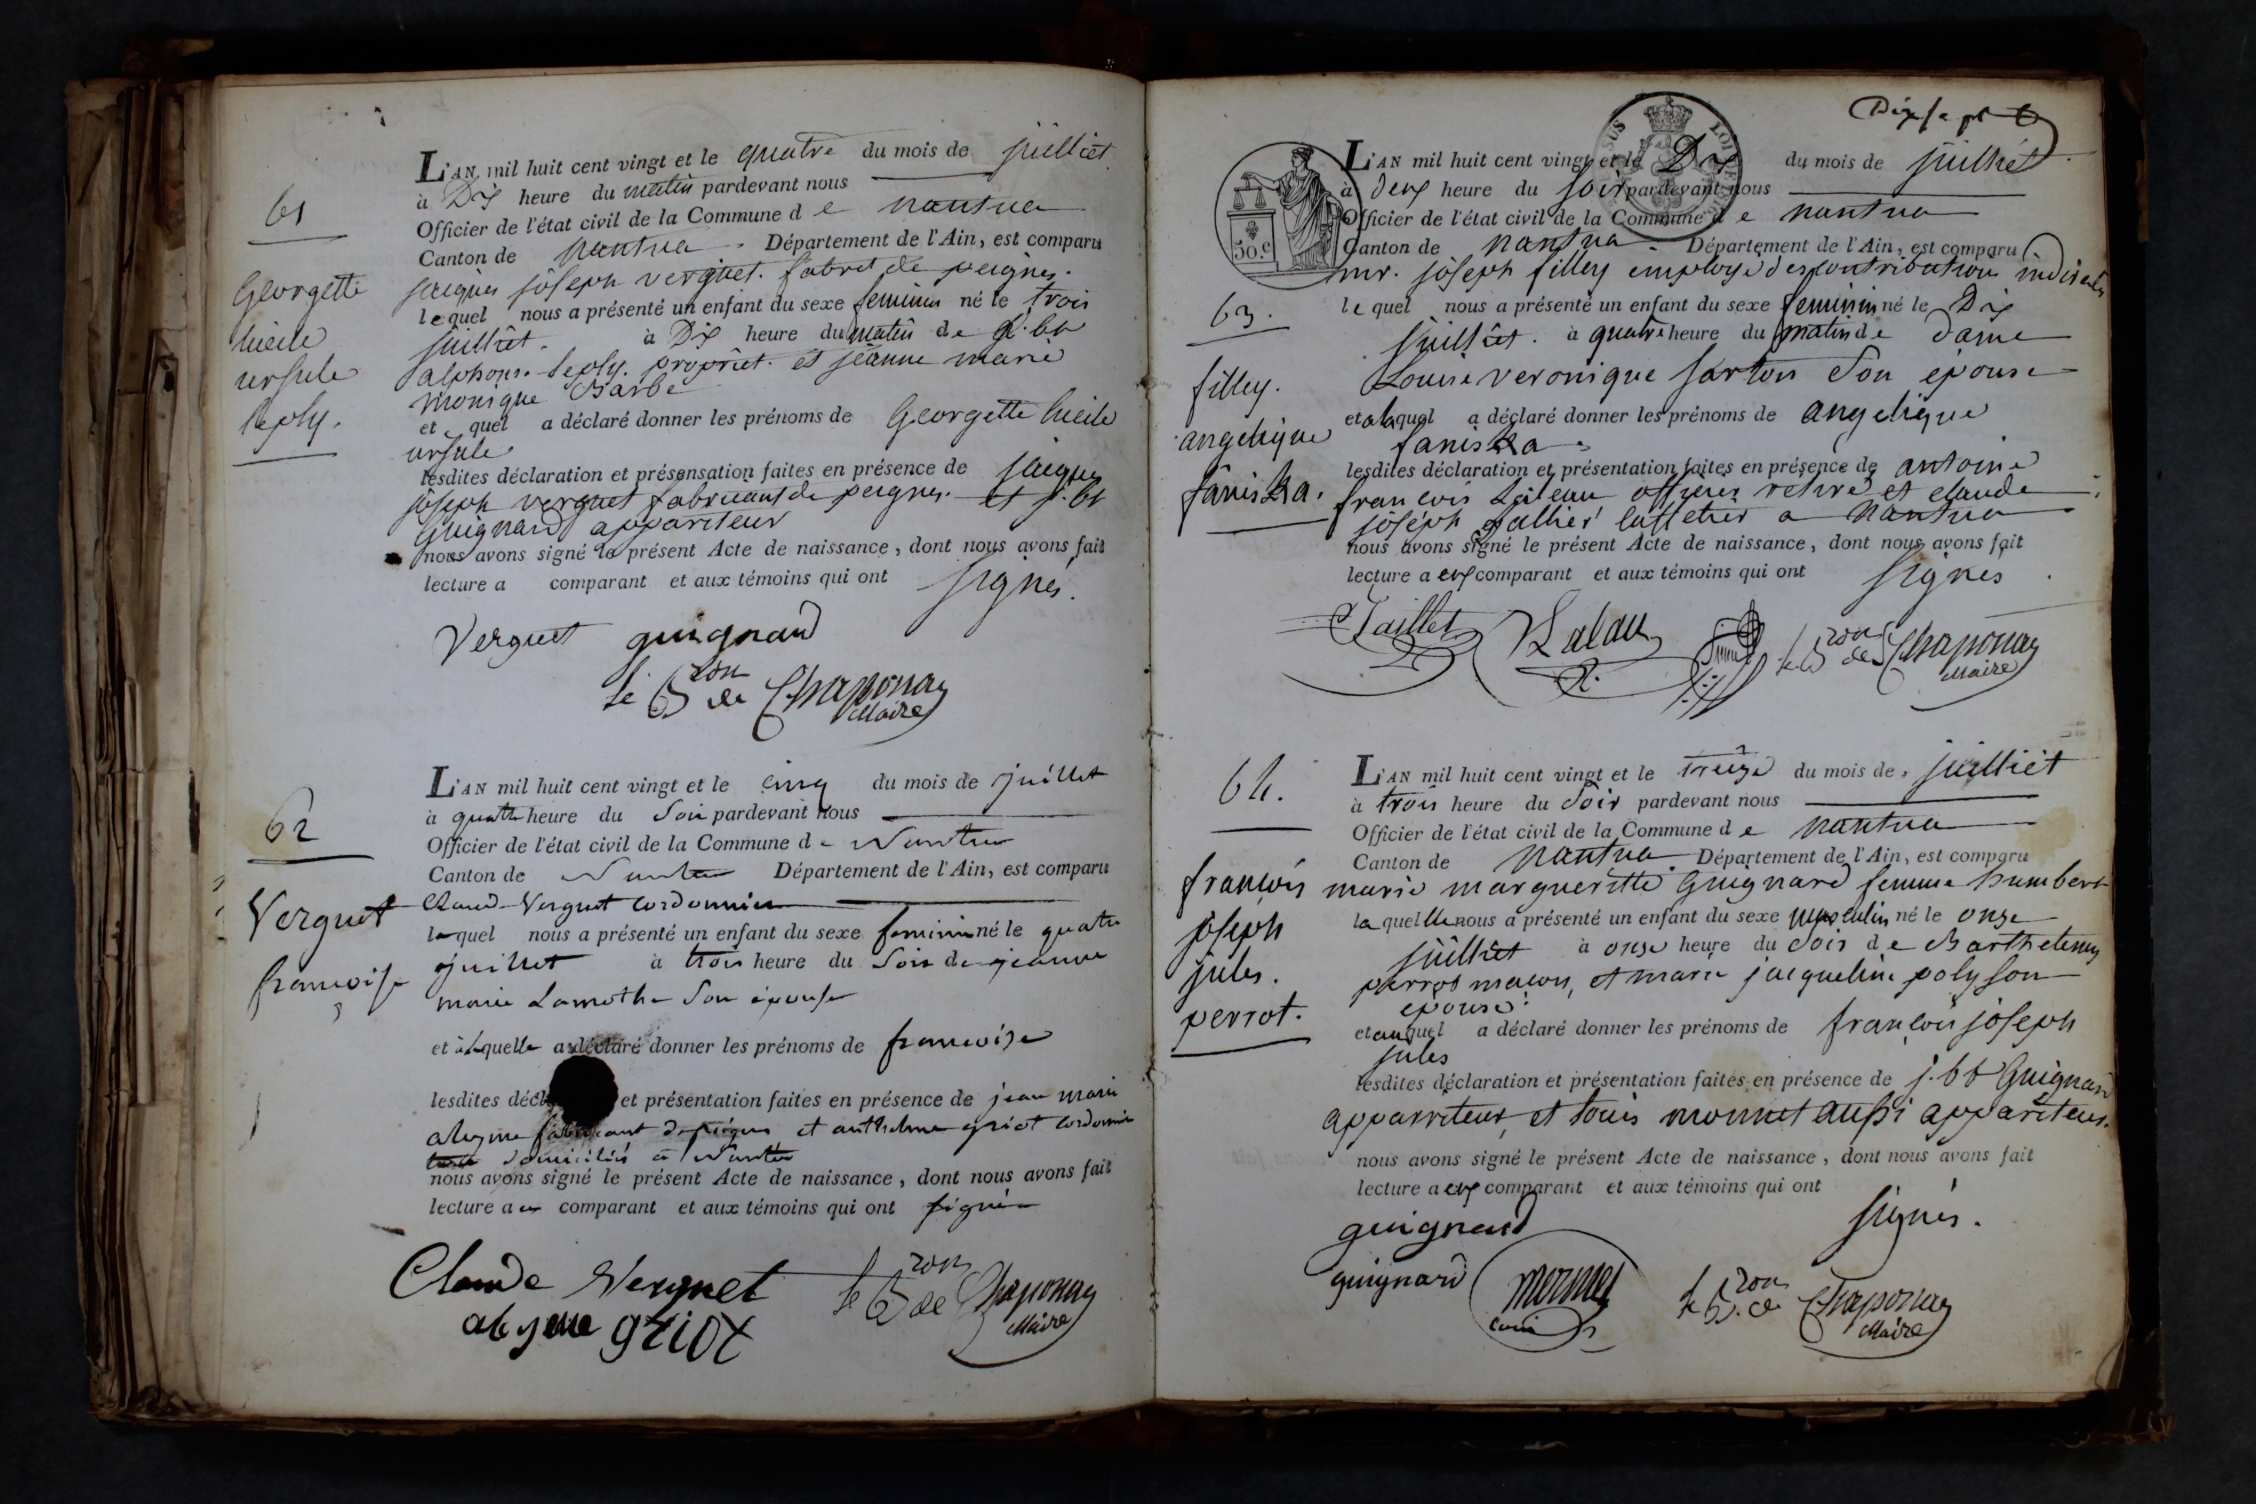 61
Georgette
lucile
ursule
Reply.
L'AN mil huit cent vingt et le quatre du mois de juilliet
à Dix heure du matin pardevant nous
Officier de l'état civil de la Commune d e nantua
Canton de nantua. Département de l'Ain, est comparu
jacques joseph verguet. fabret de peignes.
lequel nous a présenté un enfant du sexe feminin né le trois
juilliet. à Dix heure du matin de j. bt
alphonse proprîet. et jeanne marie
monique Barbe
et quel a déclaré donner les prénoms de Georgette lucile
ursule
lesdites déclaration et présensation faites en présence de jacques
joseph verguet fabricant de peignes. et j. bt
Guignard appariteur
nous avons signé le présent Acte de naissance, dont nous avons fait
lecture a comparant et aux témoins qui ont signés.
Verguet guignard
le Bron de Chaponay
Maire
62
Verguet
francoise
L'AN mil huit cent vingt et le cinq du mois de juillet
à quatre heure du Soir pardevant nous
Officier de l'état civil de la Commune d e Nantua
Canton de Nantua Département de l'Ain, est comparu
Claude Verguet cordonnier
lequel nous a présenté un enfant du sexe feminin né le quatre
juillet à trois heure du Soir de jeanne
marie Lamothe Son épouse
et à laquelle a déclaré donner les prénoms de francoise
lesdites décl et présentation faites en présence de jean marie
aleyme fabricant de peignes et anthelme griot cordonnier
domiciliés à Nantua
nous avons signé le présent Acte de naissance, dont nous avons fait
lecture a comparant et aux témoins qui ont signés
Claude Verguet
aleyme griot
le Bron de Chaponay
Maire
Dix sept
50.c
L'AN mil huit cent vingt et le Dix du mois de juilliet
à deux heure du soir pardevant nous
Officier de l'état civil de la Commune d e nantua
Canton de nantua. Département de l'Ain, est comparu
mr. joseph filley employé des contributions indirectes
63.
filley.
angelique
faniska.
le quel nous a présenté un enfant du sexe feminin né le Dix
juilliet. à quatre heure du matin de dame
Louise veronique Sarton Son épouse
et a laquel a déclaré donner les prénoms de angelique
faniska
lesdites déclaration et présentation faites en présence de antoine
francois officier retiré et claude
joséph a nantua
nous avons signé le présent Acte de naissance, dont nous avons fait
lecture a eux comparant et aux témoins qui ont signés
le Bron de Chaponay
Maire
64.
francois
joseph
jules.
perrot.
L'AN mil huit cent vingt et le treize du mois de juilliet
à trois heure du Soir pardevant nous
Officier de l'état civil de la Commune d e nantua
Canton de nantua Département de l'Ain, est comparu
marie margueritte Guignard femme humbert
laquelle nous a présenté un enfant du sexe masculin né le onze
juilliet à onze heure du Soir d e Barthelemy
perrot macon, et marie jacqueline poly son
epouse.
et auquel a déclaré donner les prénoms de françois joseph
jules
lesdites déclaration et présentation faites en présence de j. bt Guignard
apparriteur, et louis monnet aussi appariteur.
nous avons signé le présent Acte de naissance, dont nous avons fait
lecture a eux comparant et aux témoins qui ont signés.
guignard
guignard
le Bron de Chaponay
Maire